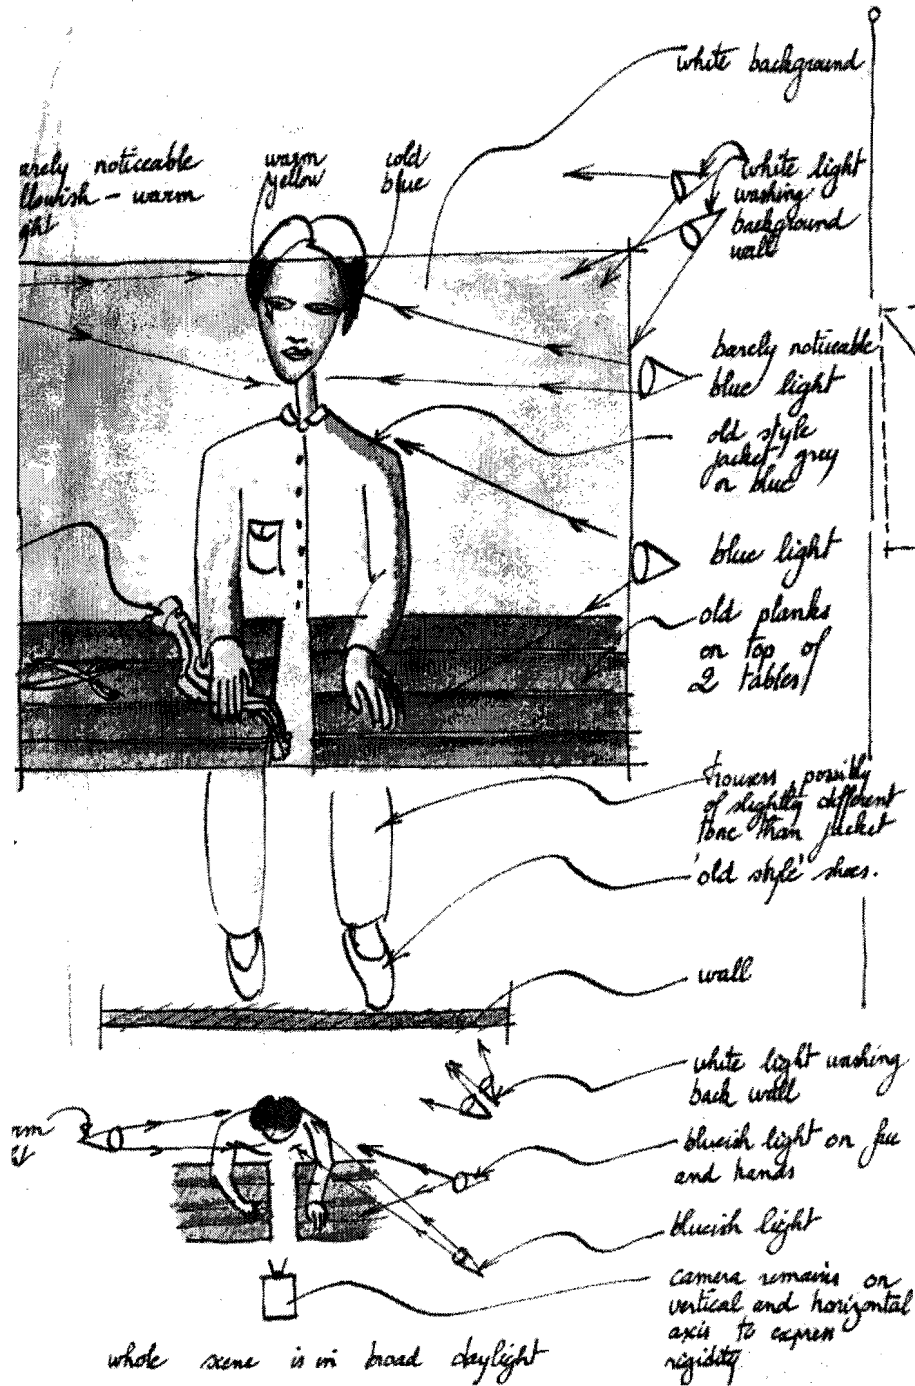 white background
arely noticeable
llowish - warm
ght
warm
yellow
cold
blue
white light
washing
background
wall
barely noticeable
blue light
old style
jacket grey
or blue
blue light
old planks
on top of
2 tables
trousers possibly
of slightly different
tone than jacket
'old style' shoes.
wall
white light washing
back wall
rm
blueish light on face
and hands
blueish light
camera remains on
vertical and horizontal
axis to express
rigidity
whole scene is in broad daylight